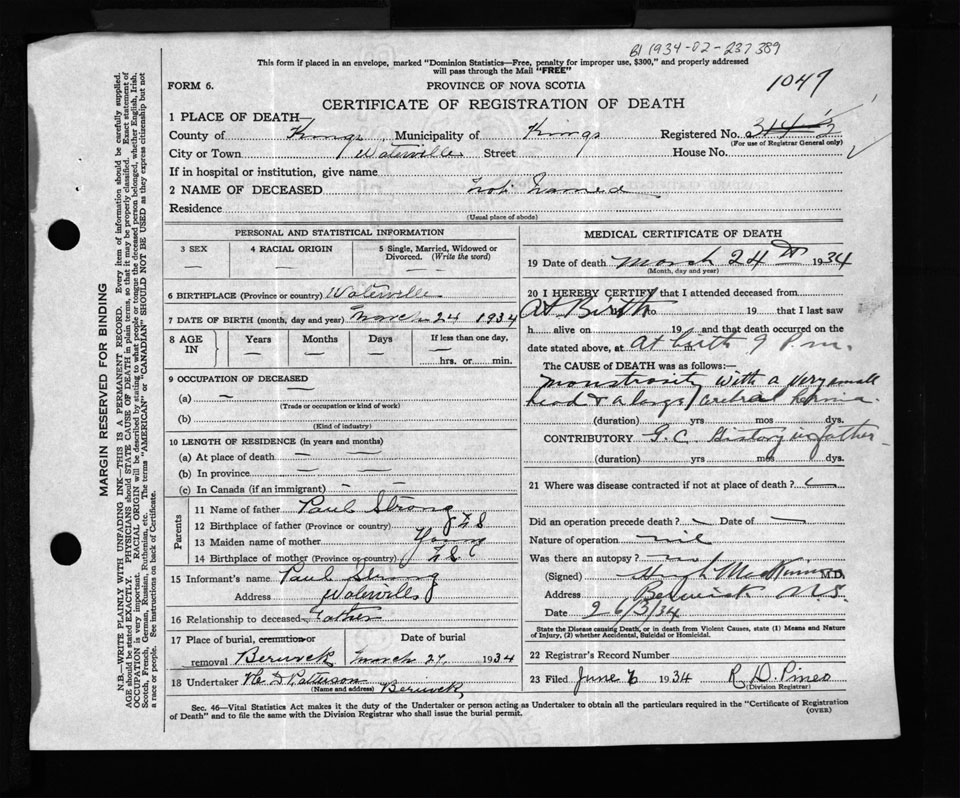 B1 1934-02-237389
This form if placed in an envelope, marked "Dominion Statistics—Free, penalty for improper use, $300," and properly addressed
will pass through the Mail "FREE"
1047
FORM 6.
PROVINCE OF NOVA SCOTIA
CERTIFICATE OF REGISTRATION OF DEATH
1 PLACE OF DEATH—
County of Kings Municipality of Kings Registered No.
(For use of Registrar General only)
City or Town Waterville Street House No.
If in hospital or institution, give name
2 NAME OF DECEASED Not Named
Residence
(Usual place of abode)
PERSONAL AND STATISTICAL INFORMATION
3 SEX — 4 RACIAL ORIGIN — 5 Single, Married, Widowed or
Divorced. (Write the word) —
6 BIRTHPLACE (Province or country) Waterville
7 DATE OF BIRTH (month, day and year) March 24 1934
8 AGE IN Years — Months — Days — If less than one day, —
hrs. or min.
9 OCCUPATION OF DECEASED —
(a) —
(Trade or occupation or kind of work)
(b)
(Kind of industry)
10 LENGTH OF RESIDENCE (in years and months)
(a) At place of death — —
(b) In province — —
(c) In Canada (if an immigrant) - -
Parents
11 Name of father Paul Strong
12 Birthplace of father (Province or country) N S
13 Maiden name of mother Young
14 Birthplace of mother (Province or country) N S
15 Informant's name Paul Strong
Address Waterville
16 Relationship to deceased Father
17 Place of burial, cremation or
removal Berwick
Date of burial
March 27, 1934
18 Undertaker Patterson
(Name and address) Berwick
MEDICAL CERTIFICATE OF DEATH
19 Date of death March 24th 1934
(Month, day and year)
20 I HEREBY CERTIFY that I attended deceased from
At Birth to 19 that I last saw
h alive on 19 and that death occurred on the
date stated above, at At birth 9 P.m.
The CAUSE of DEATH was as follows:—
Monstrosity with a very small
head & a large cerebral hernia.
(duration) yrs mos dys.
CONTRIBUTORY G.C. History in father
(duration) yrs mos dys.
21 Where was disease contracted if not at place of death? —
Did an operation precede death? - Date of —
Nature of operation nil
Was there an autopsy? no
(Signed) Hugh MacKinnon M.D.
Address Berwick N.S.
Date 26/3/34
State the Disease causing Death, or in death from Violent Causes, state (1) Means and Nature
of Injury, (2) whether Accidental, Suicidal or Homicidal.
22 Registrar's Record Number
23 Filed June 6 1934 R. D. Pineo
(Division Registrar)
Sec. 46—Vital Statistics Act makes it the duty of the Undertaker or person acting as Undertaker to obtain all the particulars required in the "Certificate of Registration
of Death" and to file the same with the Division Registrar who shall issue the burial permit.
(OVER)
MARGIN RESERVED FOR BINDING
N.B.—WRITE PLAINLY WITH UNFADING INK—THIS IS A PERMANENT RECORD. Every item of information should be carefully supplied.
AGE should be stated EXACTLY. PHYSICIANS should STATE CAUSE OF DEATH in plain terms, so that it may be properly classified. Exact statement of
OCCUPATION is very important. RACIAL ORIGIN will be described by stating to what people or tongue the deceased person belonged, whether English, Irish,
Scotch, French, German, Russian, Ruthenian, etc. The terms "AMERICAN" or "CANADIAN" SHOULD NOT BE USED as they express citizenship but not
a race or people. See instructions on back of Certificate.